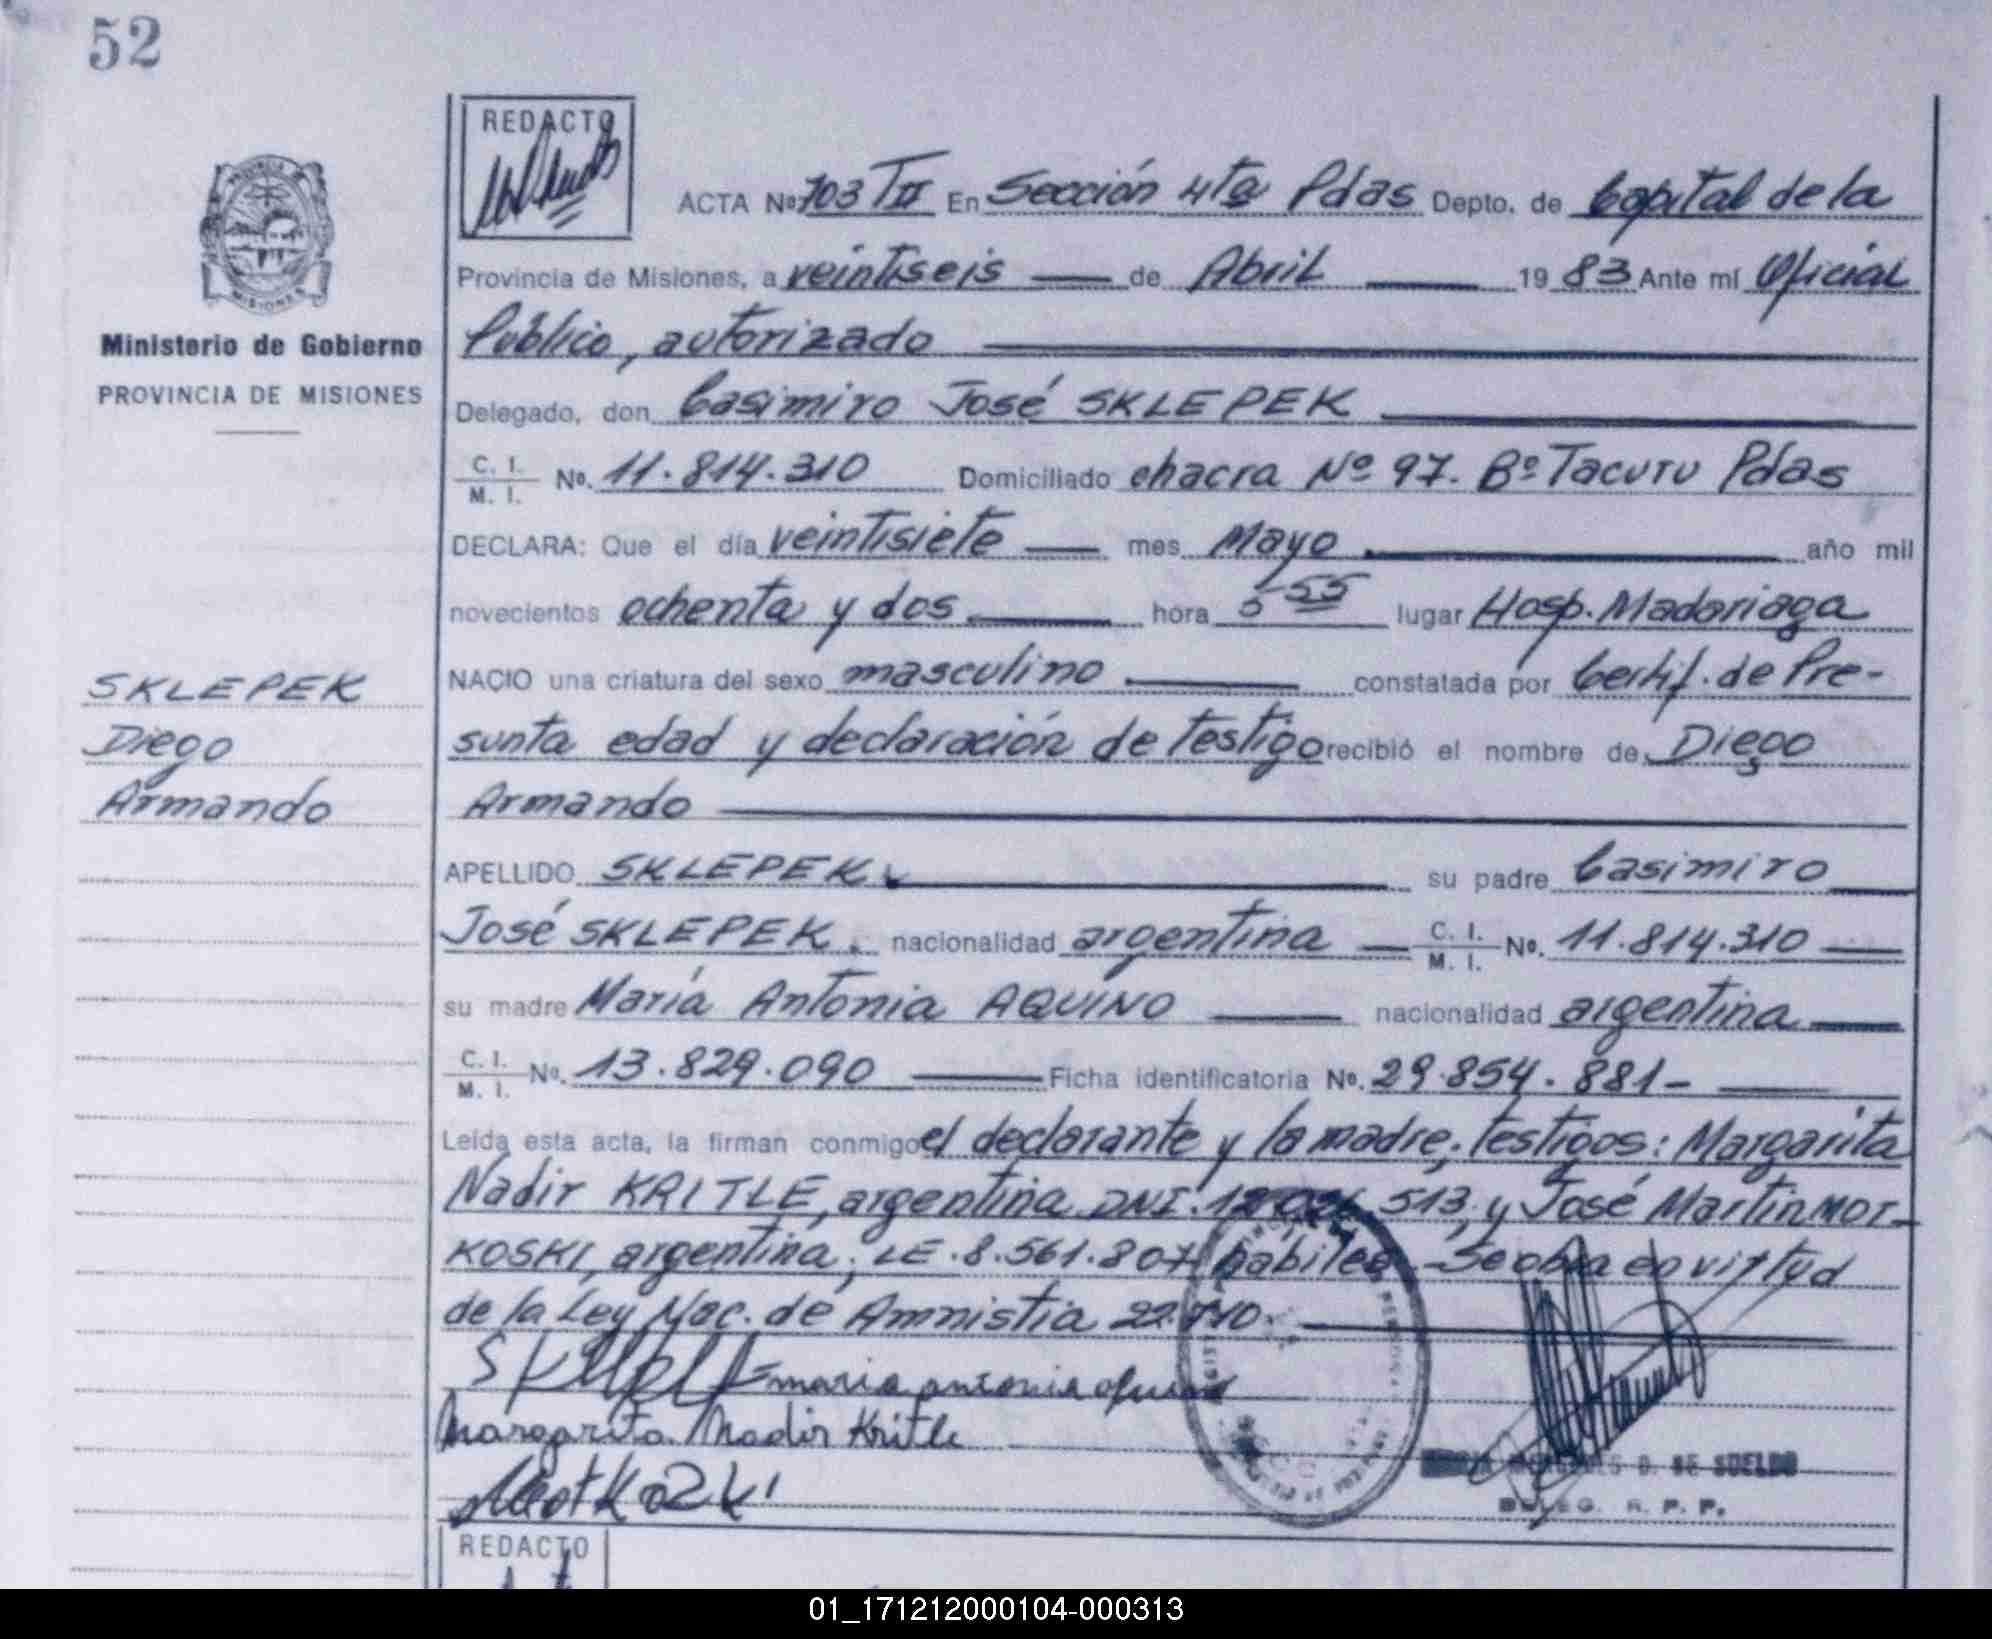 52
REDACTO
ACTA Nº 703 TII En Sección 4ta Pdas Depto. de Capital de la
Provincia de Misiones, a veintiseis de Abril 19 83 Ante mí Oficial
Público, autorizado
Delegado, don Casimiro José SKLEPEK
C. I.
M. I. Nº. 11.814.310 Domiciliado chacra Nº 97. Bº Tacuru Pdas
DECLARA: Que el día veintisiete mes Mayo año mil
novecientos ochenta y dos hora 5 55 lugar Hosp. Madariaga
NACIO una criatura del sexo masculino constatada por Certif. de Pre-
sunta edad y declaración de testigo recibió el nombre de Diego
Armando
APELLIDO SKLEPEK su padre Casimiro
José SKLEPEK. nacionalidad argentina C. I.
M. I. Nº. 11.814.310
su madre María Antonia AQUINO nacionalidad argentina
C. I.
M. I. Nº. 13.829.090 Ficha identificatoria Nº. 29.854.881-
Leída esta acta, la firman conmigo el declarante y la madre; testigos: Margarita
Nadir KRITLE, argentina DNI. 513, y José Martin MOT-
KOSKI, argentina; LE. 8.561.807 habiles. Se obra en virtud
de la Ley Nac. de Amnistia 22.
maria antonia
Margarita Nadir Kritle
D. DE SUELDO
DELEG. R. P. P.
Ministerio de Gobierno
PROVINCIA DE MISIONES
SKLEPEK
Diego
Armando
REDACTO
01_171212000104-000313